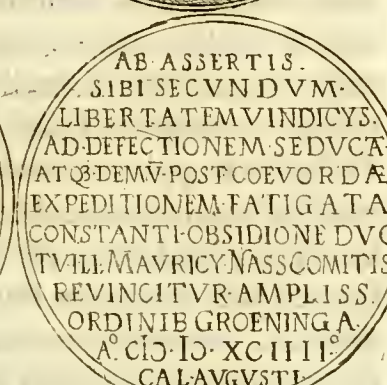 AB·ASSERTIS·
SIBI·SECVNDVM·
LIBERTATEM VINDICYS·
AD·DEFECTIONEM·SEDVCTA·
ATQ3·DEMV̄·POST·COEVORDÆ
EXPEDITIONEM·FATIGATA
CONSTANTI·OBSIDIONE DVC
TV·ILL·MAVRICY·NASS·COMITIS
REVINCITVR·AMPLISS·
ORDINIB GROENINGA·
A.° CIƆ·IƆ·XCIIII°·
CAL·AVGVSTI·